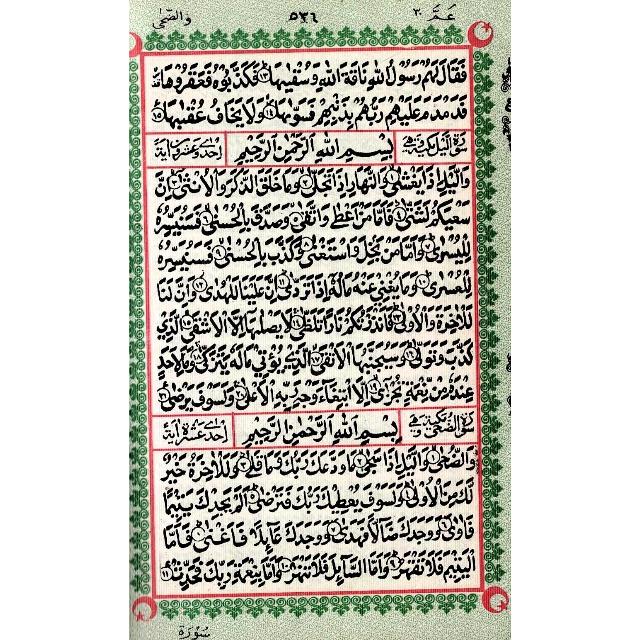 عَمَّ ٣٠ ٥٣٦ وَالضُّحٰى
فَقَالَ لَهُمْ رَسُولُ اللّٰهِ نَاقَةَ اللّٰهِ وَسُقْيٰيهَا ۝١٣ فَكَذَّبُوهُ فَعَقَرُوهَا
فَدَمْدَمَ عَلَيْهِمْ رَبُّهُمْ بِذَنْبِهِمْ فَسَوّٰيهَا ۝١٤ وَلَا يَخَافُ عُقْبٰيهَا ۝١٥
سُورَةُ الَّيْلِ مَكِّيَّةٌ وَهِيَ بِسْمِ اللّٰهِ الرَّحْمٰنِ الرَّحِيمِ اِحْدٰى وَعِشْرُونَ اٰيَةً
وَالَّيْلِ اِذَا يَغْشٰى ۝١ وَالنَّهَارِ اِذَا تَجَلّٰى ۝٢ وَمَا خَلَقَ الذَّكَرَ وَالْاُنْثٰى ۝٣ اِنَّ
سَعْيَكُمْ لَشَتّٰى ۝٤ فَاَمَّا مَنْ اَعْطٰى وَاتَّقٰى ۝٥ وَصَدَّقَ بِالْحُسْنٰى ۝٦ فَسَنُيَسِّرُهُ
لِلْيُسْرٰى ۝٧ وَاَمَّا مَنْ بَخِلَ وَاسْتَغْنٰى ۝٨ وَكَذَّبَ بِالْحُسْنٰى ۝٩ فَسَنُيَسِّرُهُ
لِلْعُسْرٰى ۝١٠ وَمَا يُغْنِي عَنْهُ مَالُهُ اِذَا تَرَدّٰى ۝١١ اِنَّ عَلَيْنَا لَلْهُدٰى ۝١٢ وَاِنَّ لَنَا
لَلْاٰخِرَةَ وَالْاُولٰى ۝١٣ فَاَنْذَرْتُكُمْ نَارًا تَلَظّٰى ۝١٤ لَا يَصْلٰيهَا اِلَّا الْاَشْقَى ۝١٥ الَّذِي
كَذَّبَ وَتَوَلّٰى ۝١٦ وَسَيُجَنَّبُهَا الْاَتْقَى ۝١٧ الَّذِي يُؤْتِي مَالَهُ يَتَزَكّٰى ۝١٨ وَمَا لِاَحَدٍ
عِنْدَهُ مِنْ نِعْمَةٍ تُجْزٰى ۝١٩ اِلَّا ابْتِغَاءَ وَجْهِ رَبِّهِ الْاَعْلٰى ۝٢٠ وَلَسَوْفَ يَرْضٰى ۝٢١
سُورَةُ الضُّحٰى مَكِّيَّةٌ وَهِيَ بِسْمِ اللّٰهِ الرَّحْمٰنِ الرَّحِيمِ اِحْدٰى عَشْرَةَ اٰيَةً
وَالضُّحٰى ۝١ وَالَّيْلِ اِذَا سَجٰى ۝٢ مَا وَدَّعَكَ رَبُّكَ وَمَا قَلٰى ۝٣ وَلَلْاٰخِرَةُ خَيْرٌ
لَكَ مِنَ الْاُولٰى ۝٤ وَلَسَوْفَ يُعْطِيكَ رَبُّكَ فَتَرْضٰى ۝٥ اَلَمْ يَجِدْكَ يَتِيمًا
فَاٰوٰى ۝٦ وَوَجَدَكَ ضَالًّا فَهَدٰى ۝٧ وَوَجَدَكَ عَائِلًا فَاَغْنٰى ۝٨ فَاَمَّا
الْيَتِيمَ فَلَا تَقْهَرْ ۝٩ وَاَمَّا السَّائِلَ فَلَا تَنْهَرْ ۝١٠ وَاَمَّا بِنِعْمَةِ رَبِّكَ فَحَدِّثْ ۝١١
سُورَةُ